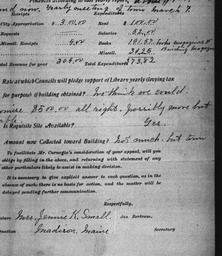 and now. Yearly meeting of town March 9
Receipts Expenditures
City Appropriation $ 300.00 Rent $ 100.00
Bequests Salaries
Miscell. Receipts 9.00 Books
Miscell.
Total Revenue 309.00 Total Expenditures
Rate at which Councils will pledge support of Library yearly (levying tax
for purpose) if building obtained? No think we could.
promise $500.00 all right. Possibly more but
Is Requisite Site Available? Yes.
Amount now Collected toward Building? Not much, but town
To facilitate Mr. Carnegie's consideration of your appeal, will you
oblige by filling in the above, and returning with statement of any
other particulars likely to assist in making decision.
It is necessary to give explicit answer to each question, as in the
absence of such there is no basis for action, and the matter will be
delayed pending further communication.
Respectfully,
Mrs. Jennie K. Small. Jas. Bertram,
Madison, Maine Secretary